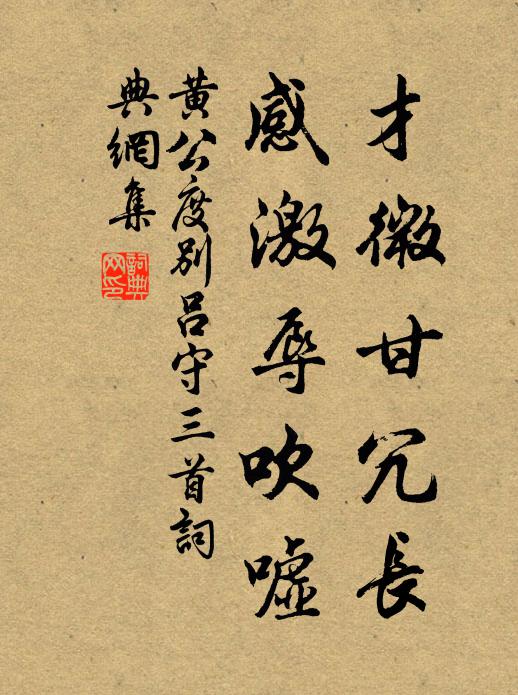 才微甘冗長
感激辱吹嘘
黄公度别吕守三首詞
典網集
詞典網印